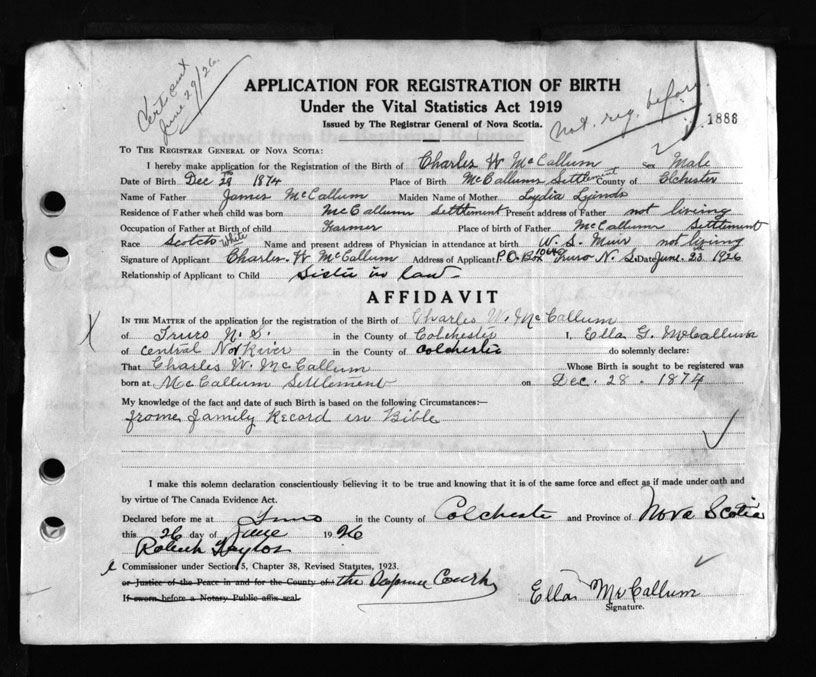 Cert sent
June 29/26.
APPLICATION FOR REGISTRATION OF BIRTH
Under the Vital Statistics Act 1919
Issued by The Registrar General of Nova Scotia.
not reg. before.
1886
TO THE REGISTRAR GENERAL OF NOVA SCOTIA:
I hereby make application for the Registration of the Birth of Charles W McCallum Sex Male
Date of Birth Dec 1874 Place of Birth McCallum Settlement County of Colchester
Name of Father James McCallum Maiden Name of Mother Lydia Lynds
Residence of Father when child was born McCallum Settlement Present address of Father not living
Occupation of Father at Birth of child Farmer Place of birth of Father McCallum Settlement
Race Scotch white Name and present address of Physician in attendance at birth W. S. Muir not living
Signature of Applicant Charles W McCallum Address of Applicant P.O. Box Truro N. S. Date June. 23 1926
Relationship of Applicant to Child Sister in law
AFFIDAVIT
IN THE MATTER of the application for the registration of the Birth of Charles W. McCallum
of Truro N.S. in the County of Colchester I, Ella G. McCallum
of Central River in the County of Colchester do solemnly declare:
That Charles W. McCallum Whose Birth is sought to be registered was
born at McCallum Settlement on Dec. 28. 1874
My knowledge of the fact and date of such Birth is based on the following Circumstances:—
frome family Record in Bible
I make this solemn declaration conscientiously believing it to be true and knowing that it is of the same force and effect as if made under oath and
by virtue of The Canada Evidence Act.
Declared before me at Truro in the County of Colchester and Province of Nova Scotia
this 26 day of June 1926
Robert Taylor
Commissioner under Section 5, Chapter 38, Revised Statutes, 1923.
or Justice of the Peace in and for the County of: the Supreme Court
If sworn before a Notary Public affix seal
Ella McCallum
Signature.